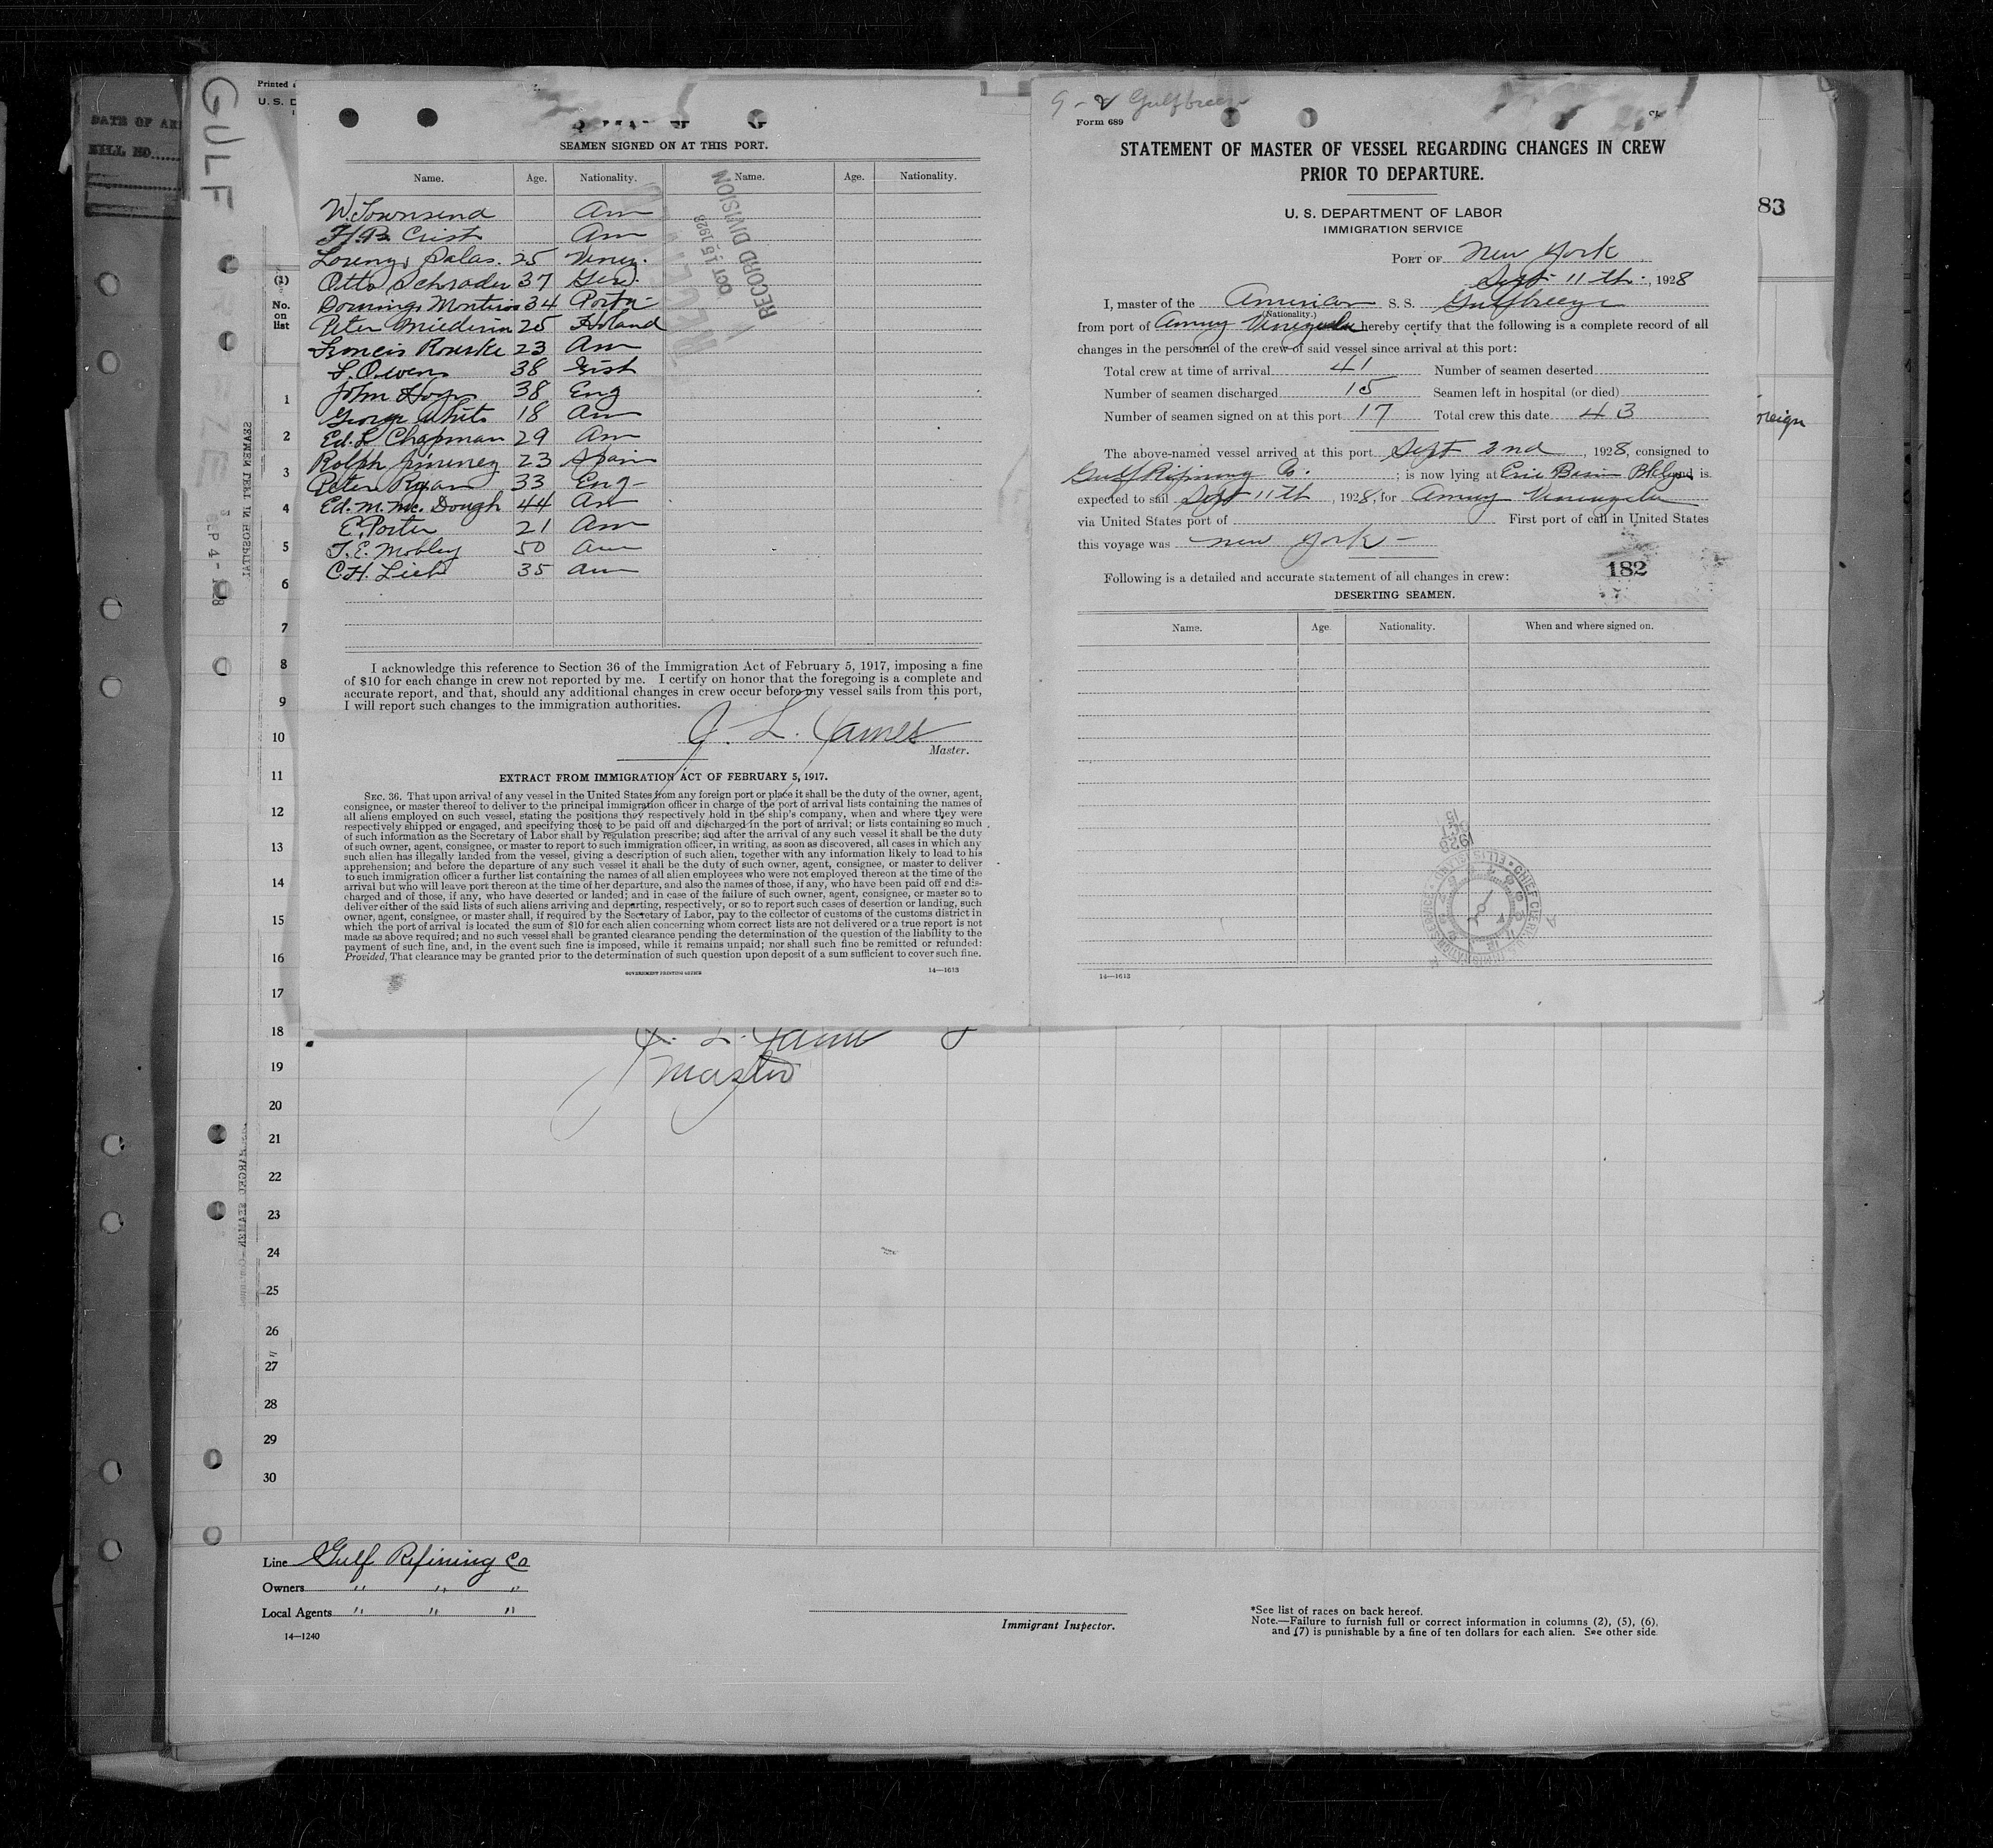 GULF
DATE OF ARR
BILL NO.
Printed
U. S. D
(1)
No.
on
list
SEAMEN LEFT IN HOSPITAL
SEP 4 - 1928
SEAMEN SIGNED ON AT THIS PORT.
Name. Age. Nationality. Name. Age. Nationality.
W. Townsend Am
H.B. Crist Am
Salas. 25 Venez.
Otto Schrader 37 Ger.
34 Portu-
Peter 25 Holand
Francis Rourke 23 Am
F. Owens 38
John 38 Eng
George White 18 Am
Ed. L. Chapman 29 Am
Rolph Jimenez 23 Spain
Peter Ryan 33 Eng-
Ed. M. Mc. Dough 44 Am
E. Porter 21 Am
T. E. Mobley 50 Am
C.H. 35 Am
RECEIVED
OCT 15 1928
RECORD DIVISION
I acknowledge this reference to Section 36 of the Immigration Act of February 5, 1917, imposing a fine
of $10 for each change in crew not reported by me. I certify on honor that the foregoing is a complete and
accurate report, and that, should any additional changes in crew occur before my vessel sails from this port,
I will report such changes to the immigration authorities.
J. L. James
Master.
EXTRACT FROM IMMIGRATION ACT OF FEBRUARY 5, 1917.
SEC. 36. That upon arrival of any vessel in the United States from any foreign port or place it shall be the duty of the owner, agent,
consignee, or master thereof to deliver to the principal immigration officer in charge of the port of arrival lists containing the names of
all aliens employed on such vessel, stating the positions they respectively hold in the ship's company, when and where they were
respectively shipped or engaged, and specifying those to be paid off and discharged in the port of arrival; or lists containing so much
of such information as the Secretary of Labor shall by regulation prescribe; and after the arrival of any such vessel it shall be the duty
of such owner, agent, consignee, or master to report to such immigration officer, in writing, as soon as discovered, all cases in which any
such alien has illegally landed from the vessel, giving a description of such alien, together with any information likely to lead to his
apprehension; and before the departure of any such vessel it shall be the duty of such owner, agent, consignee, or master to deliver
to such immigration officer a further list containing the names of all alien employees who were not employed thereon at the time of the
arrival but who will leave port thereon at the time of her departure, and also the names of those, if any, who have been paid off and dis-
charged and of those, if any, who have deserted or landed; and in case of the failure of such owner, agent, consignee, or master so to
deliver either of the said lists of such aliens arriving and departing, respectively, or so to report such cases of desertion or landing, such
owner, agent, consignee, or master shall, if required by the Secretary of Labor, pay to the collector of customs of the customs district in
which the port of arrival is located the sum of $10 for each alien concerning whom correct lists are not delivered or a true report is not
made as above required; and no such vessel shall be granted clearance pending the determination of the question of the liability to the
payment of such fine, and, in the event such fine is imposed, while it remains unpaid; nor shall such fine be remitted or refunded:
Provided, That clearance may be granted prior to the determination of such question upon deposit of a sum sufficient to cover such fine.
GOVERNMENT PRINTING OFFICE 14—1613
9 - 2 Gulfbreeze
Form 689
STATEMENT OF MASTER OF VESSEL REGARDING CHANGES IN CREW
PRIOR TO DEPARTURE.
U. S. DEPARTMENT OF LABOR
IMMIGRATION SERVICE
PORT OF New York
Sept 11th, 1928
I, master of the American S. S. Gulfbreeze
(Nationality.)
from port of Amuay Venezuela hereby certify that the following is a complete record of all
changes in the personnel of the crew of said vessel since arrival at this port:
Total crew at time of arrival 41 Number of seamen deserted
Number of seamen discharged 15 Seamen left in hospital (or died)
Number of seamen signed on at this port 17 Total crew this date 43
The above-named vessel arrived at this port Sept 2nd, 1928, consigned to
Gulf Refining Co.; is now lying at Erie Basin Bklyn and is
expected to sail Sept 11th, 1928, for Amuay Venezuela
via United States port of First port of call in United States
this voyage was New York -
Following is a detailed and accurate statement of all changes in crew:
182
DESERTING SEAMEN.
Name. Age. Nationality. When and where signed on.
OCT 15 1928
CHIEF CLERK U.S. IMMIGRATION SERVICE ELLIS ISLAND
14—1613
83
oreign
1
2
3
4
5
6
7
8
9
10
11
12
13
14
15
16
17
18
J. L. James
Master
19
20
21
22
23
24
25
26
27
28
29
30
Line Gulf Refining Co
Owners " " "
Local Agents " " "
14—1240
Immigrant Inspector.
*See list of races on back hereof.
Note.—Failure to furnish full or correct information in columns (2), (5), (6),
and (7) is punishable by a fine of ten dollars for each alien. See other side.